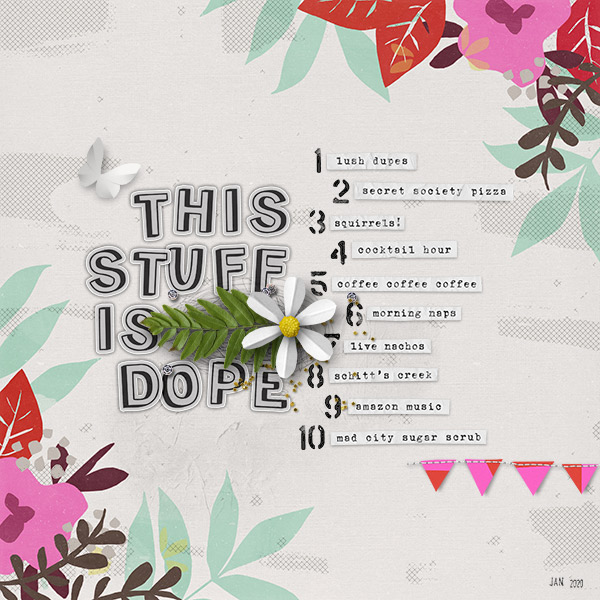 THIS
STUFF
IS
DOPE
1 lush dupes
2 secret society pizza
3 squirrels!
4 cocktail hour
5 coffee coffee coffee
6 morning naps
7 live nachos
8 schitt's creek
9 amazon music
10 mad city sugar scrub
JAN 2020